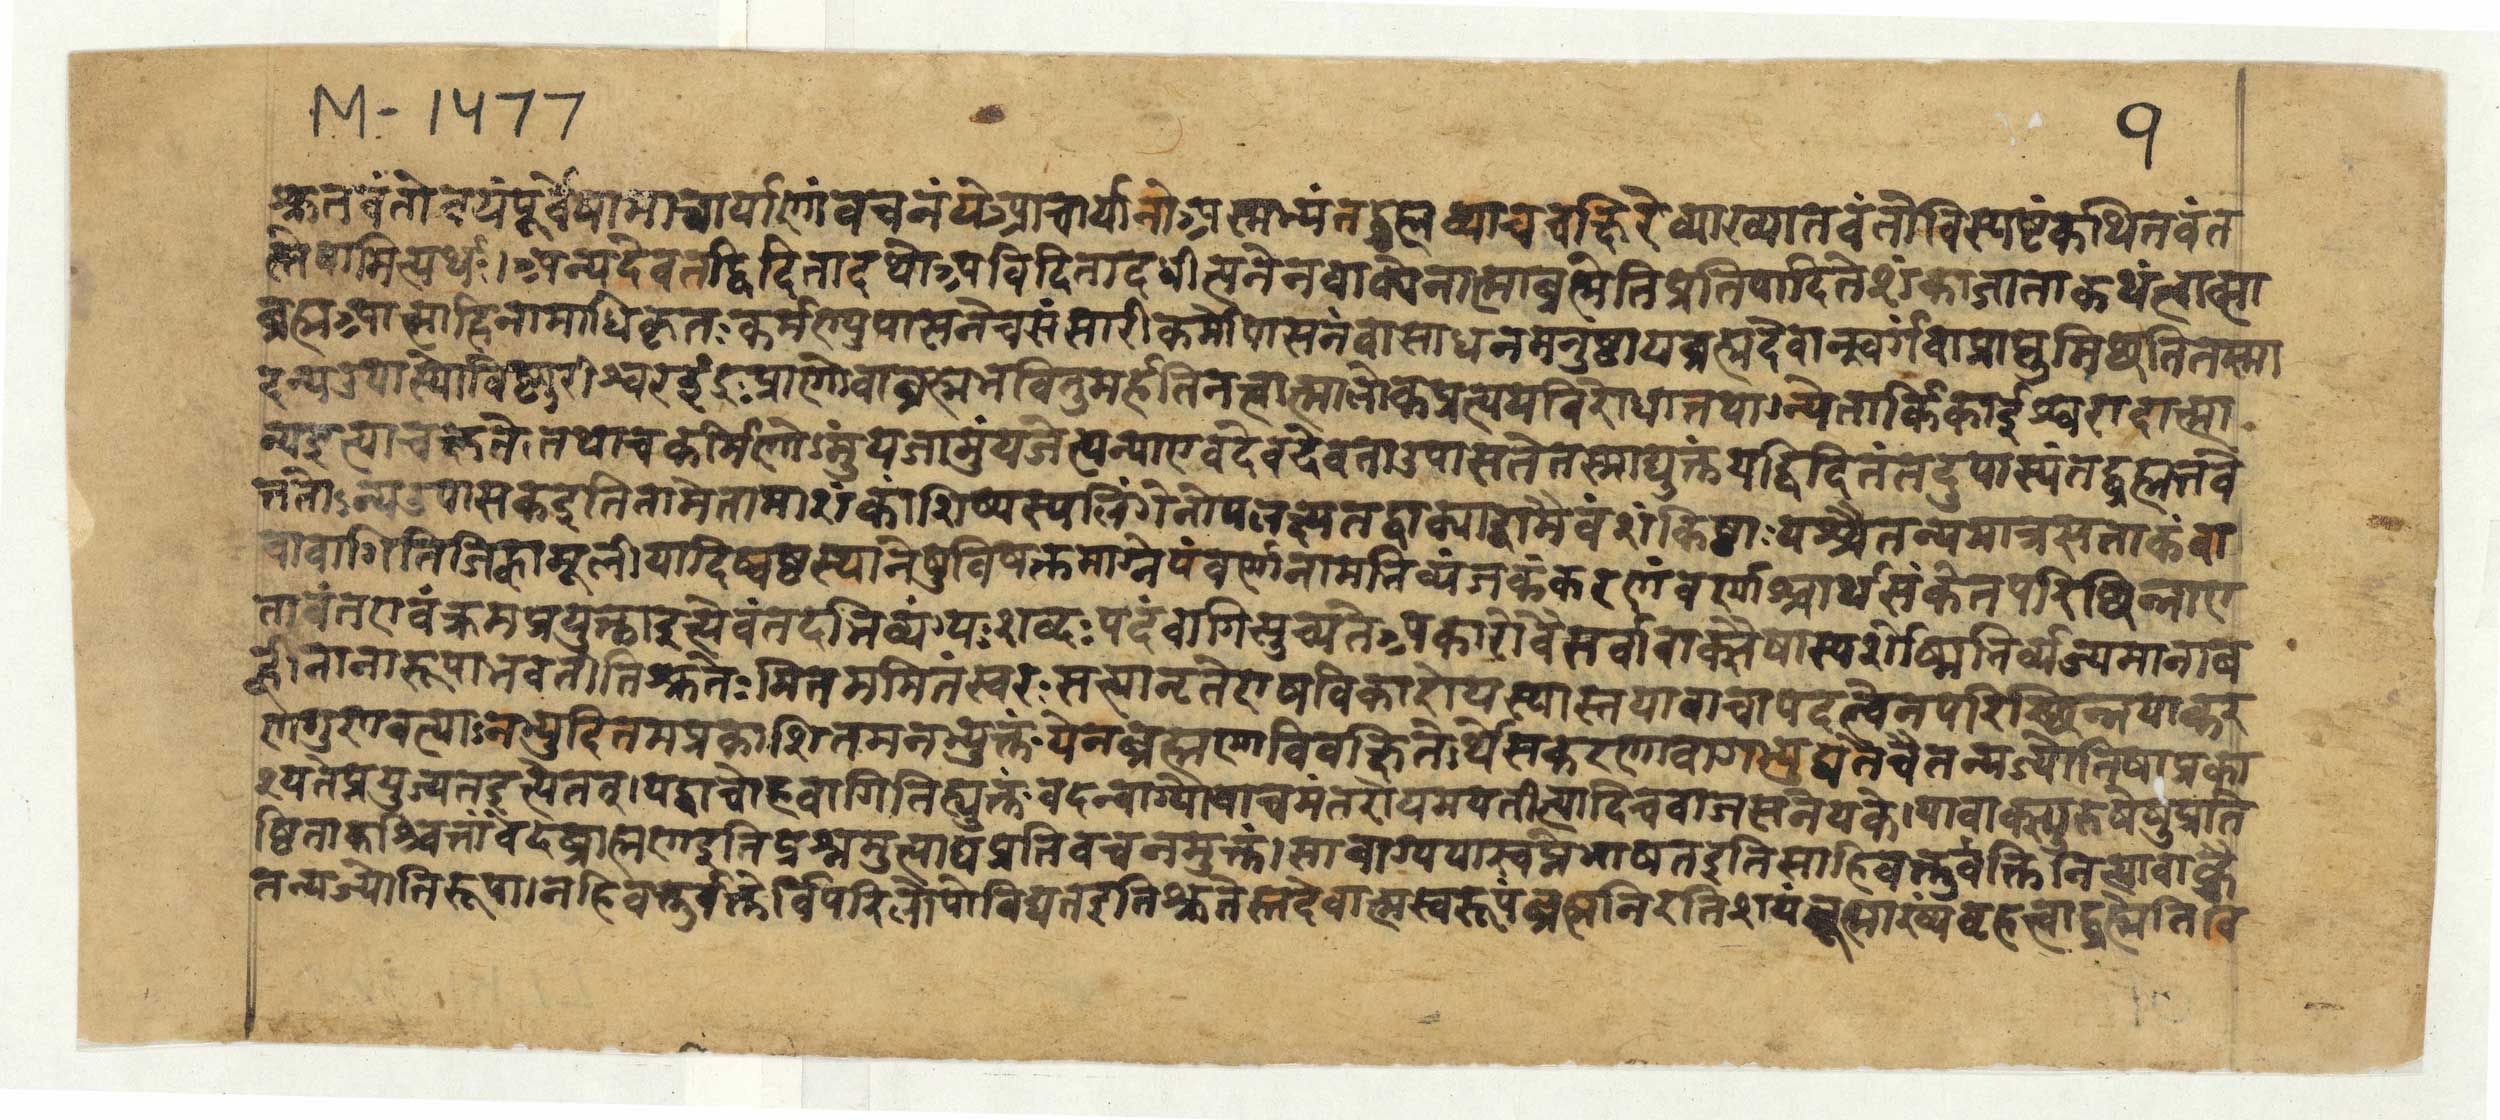 M-1477
१
श्रुतवंतो वयं पूर्वेषामाचार्याणां वचनं ये आचार्या नो अस्मभ्यं तद्ब्रह्म व्याचचक्षिरे व्याख्यातवंतो विस्पष्टं कथितवंत
स्तेषामित्यर्थः। अन्यदेव तद्विदितादथो अविदितादधीत्यनेन वाक्येनात्मा ब्रह्मेति प्रतिपादिते शंका जाता कथं त्वात्मा
ब्रह्म आत्मा हि नामाधिकृतः कर्मण्युपासने च संसारी कर्मोपासनं वा साधनमनुष्ठाय ब्रह्मदेवान्स्वर्गं वा प्राप्तुमिछति तस्मा
दन्य उपास्यो विष्णुरीश्वर इंद्रः प्राणो वा ब्रह्म भवितुमर्हति न त्वात्मा लोकप्रत्ययविरोधात् यथाऽन्ये तार्किका ईश्वरादात्मा
न्य इत्याचक्षते। तथा च कर्मिणोऽमुं यजामुं यजेत्यन्या एव देवदेवता उपासते तस्माद्युक्तं यद्विदितं तदुपास्यं तद्ब्रह्म भवे
त्ततोऽन्य उपासक इति तामेतामाशंकां शिष्यस्य लिंगेनोपलक्ष्य तद्वाक्याद्वा मैवं शंकिष्ठाः यच्चैतन्यमात्रसत्ताकं वा
चा वागिति जिह्वामूलीयादिष्वष्टस्थानेषु विषक्तमाग्नेयं वर्णानामभिव्यंजकं करणं वर्णाश्चार्थसंकेतपरिछिन्ना ए
तावंत एवं क्रमप्रयुक्ता इत्येवं तदभिव्यंग्यः शब्दः पदं वागित्युच्यते अकारो वै सर्वा वाक् सैषा स्पर्शोष्मभिर्व्यज्यमाना ब
ह्वी नानारूपा भवतीति श्रुतेः मितममितं स्वरः सत्यानृते एष विकारो यस्यास्तया वाचा पदत्वेन परिच्छिन्नया कर
णगुणवत्याऽनभ्युदितमप्रकाशितमनभ्युक्तं येन ब्रह्मणा विवक्षितेऽर्थे सकरणा वागभ्युद्यते चैतन्यज्योतिषा प्रका
श्यते प्रयुज्यत इत्येतत्। यद्वाचो ह वागिति ह्युक्तं वदन्वाग्यो वाचमंतरो यमयतीत्यादि च वाजसनेयके। या वाक् पुरुषेषु प्रति
ष्ठिता कश्चित्तां वेद ब्राह्मण इति प्रश्नमुत्पाद्य प्रतिवचनमुक्तं। सा वाग्यया स्वप्ने भाषत इति सा हि वक्तुर्वक्तिर्नित्या वाक्चै
तन्यज्योतिरूपा। न हि वक्तुर्वक्तेर्विपरिलोपो विद्यत इति श्रुतेस्तदेवात्मस्वरूपं ब्रह्म निरतिशयं भूमाख्यं बृहत्वाद्ब्रह्मेति वि